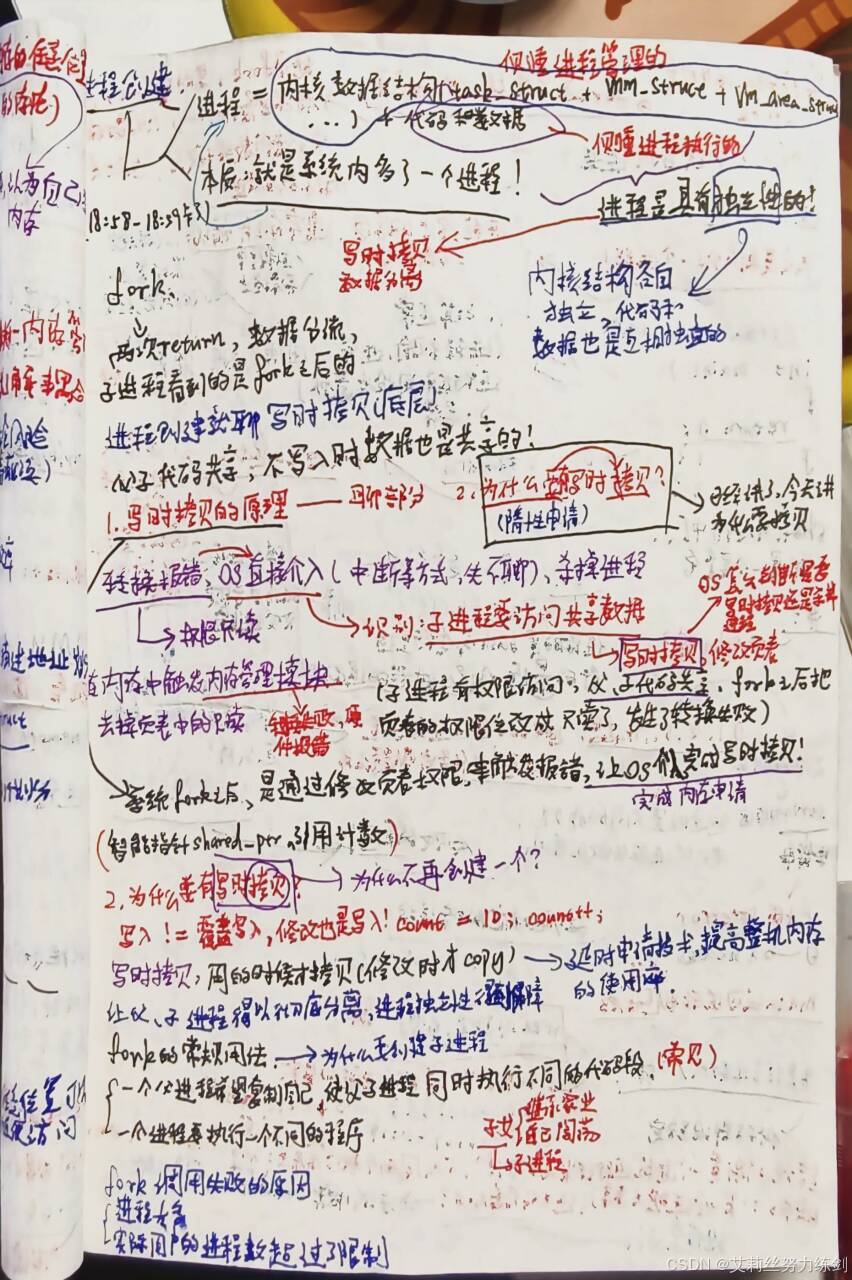 进程创建
侧重进程管理的
进程 = 内核数据结构(task_struct + mm_struct + vm_area_struct
...) + 代码和数据
侧重进程执行的
本质:就是系统内多了一个进程!
进程是具有独立性的!
写时拷贝
数据分离
内核结构各自
独立,代码和
数据也是互相独立的
fork
两次return,数据分流,
子进程看到的是fork之后的
进程创建就聊写时拷贝(底层)
父子代码共享,不写入时数据也是共享的!
1.写时拷贝的原理 —— 聊部分
2.为什么要有写时拷贝?
(隋性申请)
已经讲了,今天讲
为什么要拷贝
转换报错,OS直接介入(中断等方式,先不聊)、杀掉进程
权限只读
识别:子进程要访问共享数据
写时拷贝,修改页表
内存中触发内存管理模块
去掉页表中的只读
转换失败,硬
件报错
(子进程有权限访问,父、子代码共享,fork之后把
页表的权限位改成只读了,发生了转换失败)
系统fork之后,是通过修改页表权限,触发报错,让OS介入完成写时拷贝!
完成内存申请
(智能指针shared_ptr,引用计数)
2.为什么要有写时拷贝?
为什么不再创建一个?
写入 != 覆盖写入,修改也是写入!count = 10; count++;
写时拷贝,用的时候才拷贝(修改时才copy)
延时申请技术,提高整机内存
的使用率.
让父、子进程得以彻底分离,进程独立性得以保障
fork的常规用法
为什么要创建子进程
一个父进程希望复制自己,使父子进程同时执行不同的代码段(常见)
一个进程要执行一个不同的程序
子女
继承家业
自己闯荡
子进程
fork调用失败的原因
进程太多
实际用户的进程数超过了限制
CSDN @艾莉丝努力练剑